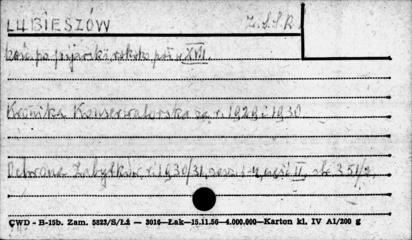 LUBIESZÓW Z.S.S.R.
kośc. po pijarski rokoko poł. w. XVIII.
Kronika Konserwatorska za r. 1929 i 1930
Ochrona Zabytków, r. 1930/31, część II, str. 351/2,
CWD - B-15b. Zam. 5823/S/Łź — 3016—Łak—15.11.56—4.000.000—Karton kl. IV A1/200 g